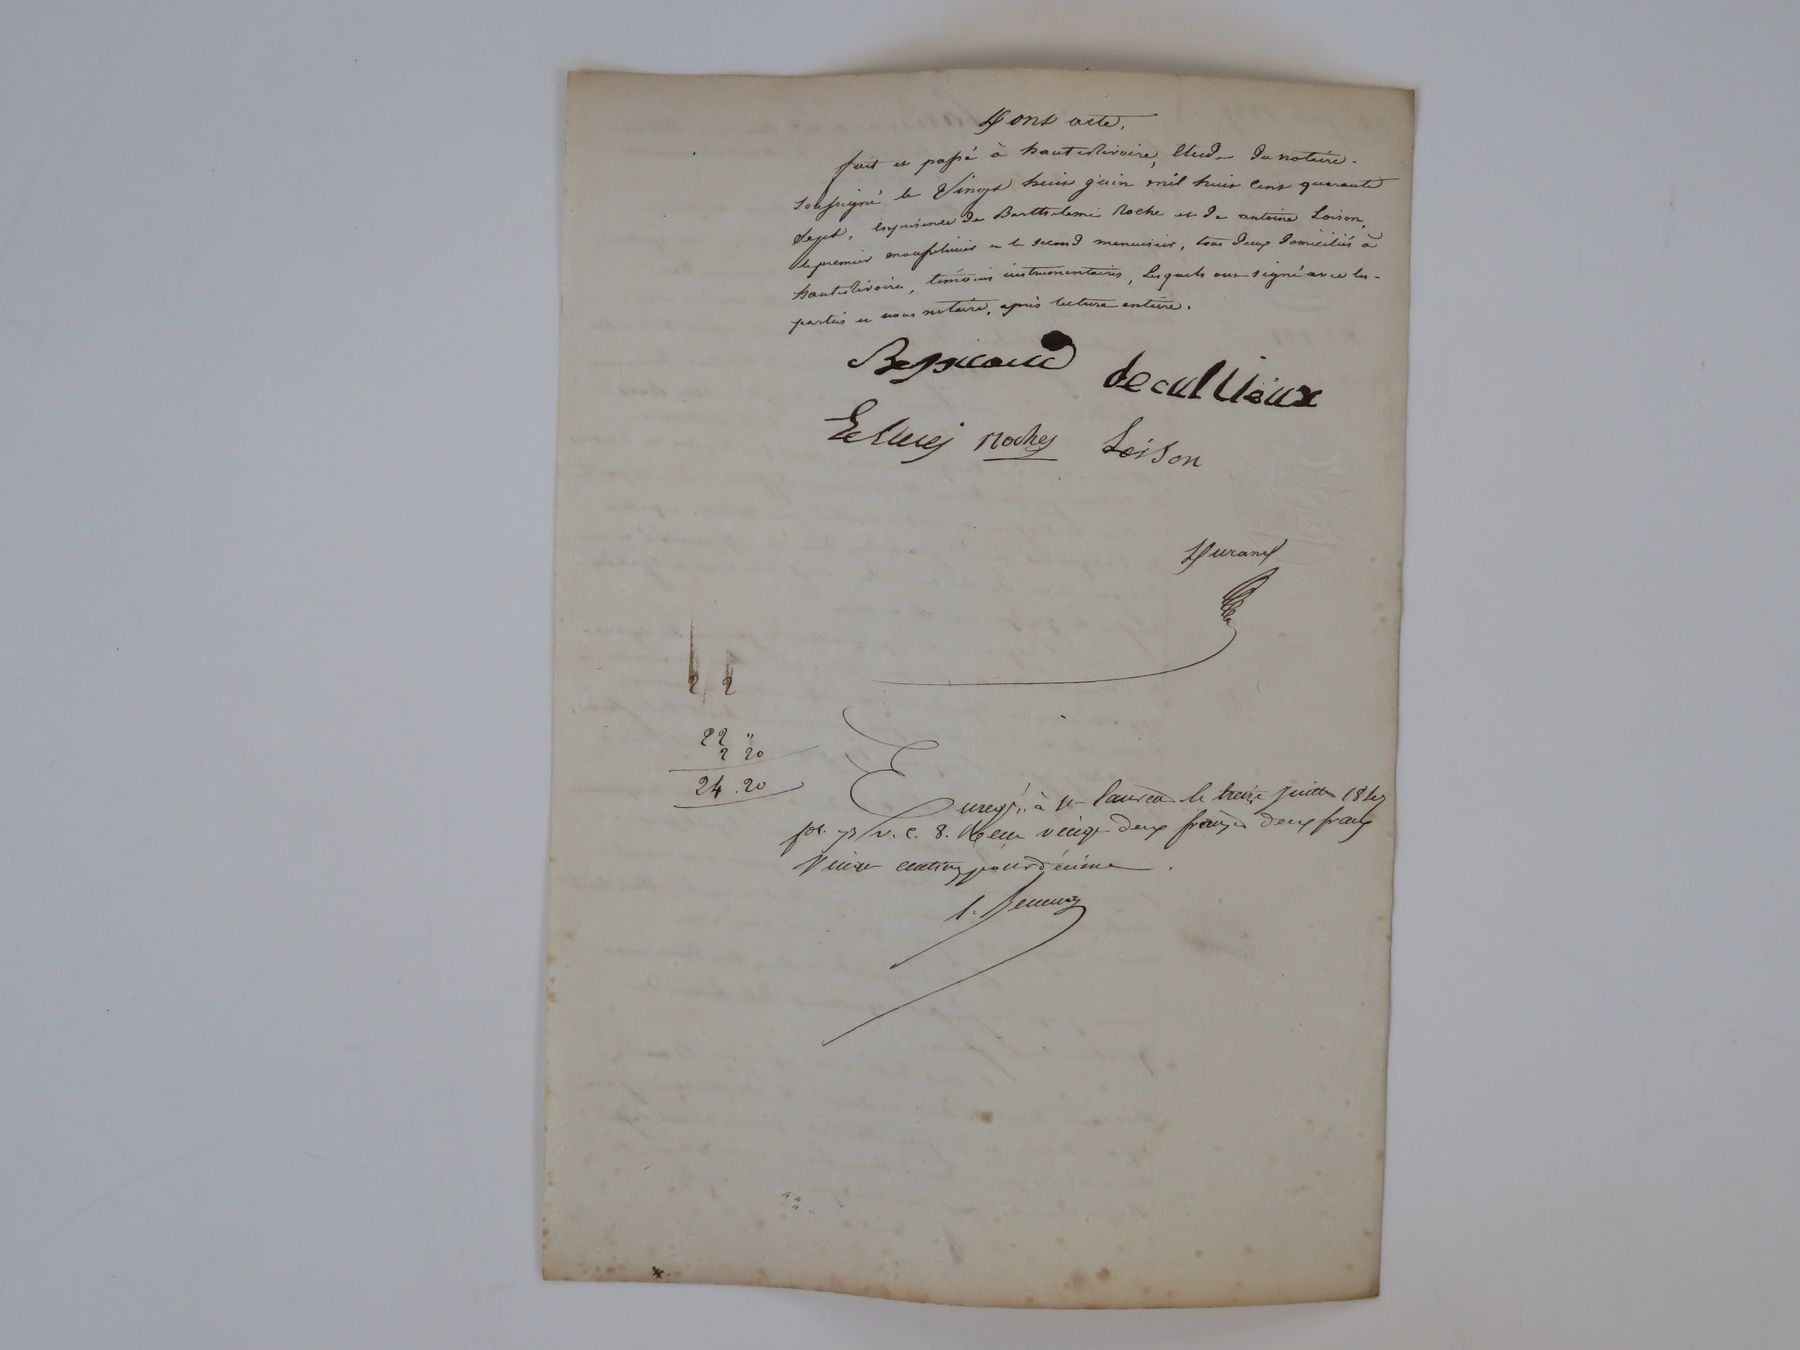 Dont acte,
fait et passé à hauterivoire, Etude du notaire
soussigné le Vingt huit juin mil huit cent quarante
sept, en présence de Barthelemi Roche et de antoine Loison,
le premier mousselinier et le second menuisier, tous deux domiciliés à
hauterivoire, témoins instrumentaires, lesquels ont signé avec les
parties et nous notaire, après lecture entière.
decullieux
Roche
Loison
Durand
22
22 "
2 20
24.20
Enregé. à St Laurent le treize juillet 1847
fol. v. c. 8. Reçu vingt deux francs deux francs
Vingt centimes pour décime